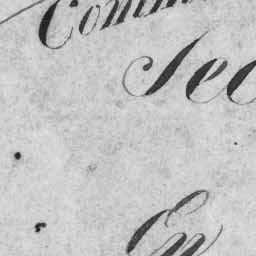 Comm
Sec
En